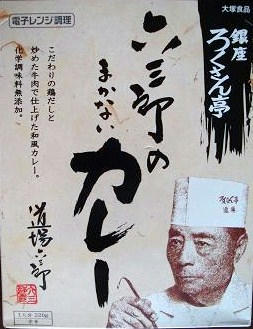 電子レンジ調理
大塚食品
銀座
ろくさん亭
六三郎の
まかない
カレー
こだわりの鶏だしと
炒めた牛肉で仕上げた和風カレー。
化学調味料無添加。
道場六三郎
ろくさん亭
道場
1人分 220g